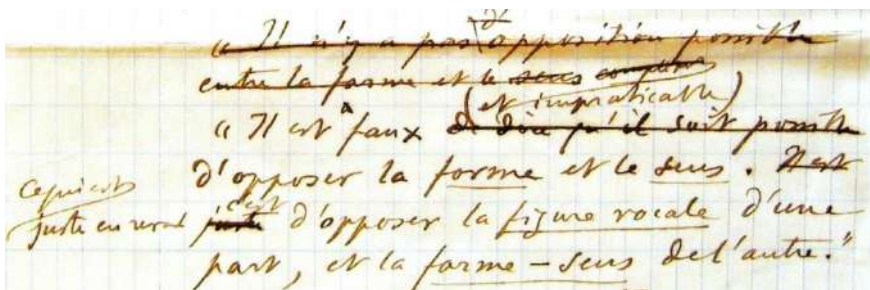 « Il n'y a pas d' opposition possible
entre la forme et le sens
(et impraticable)
« Il est faux de dire qu'il soit possible
d'opposer la forme et le sens. Il est
Ce qui est
juste en revanche c'est juste d'opposer la figure vocale d'une
part, et la forme-sens de l'autre."